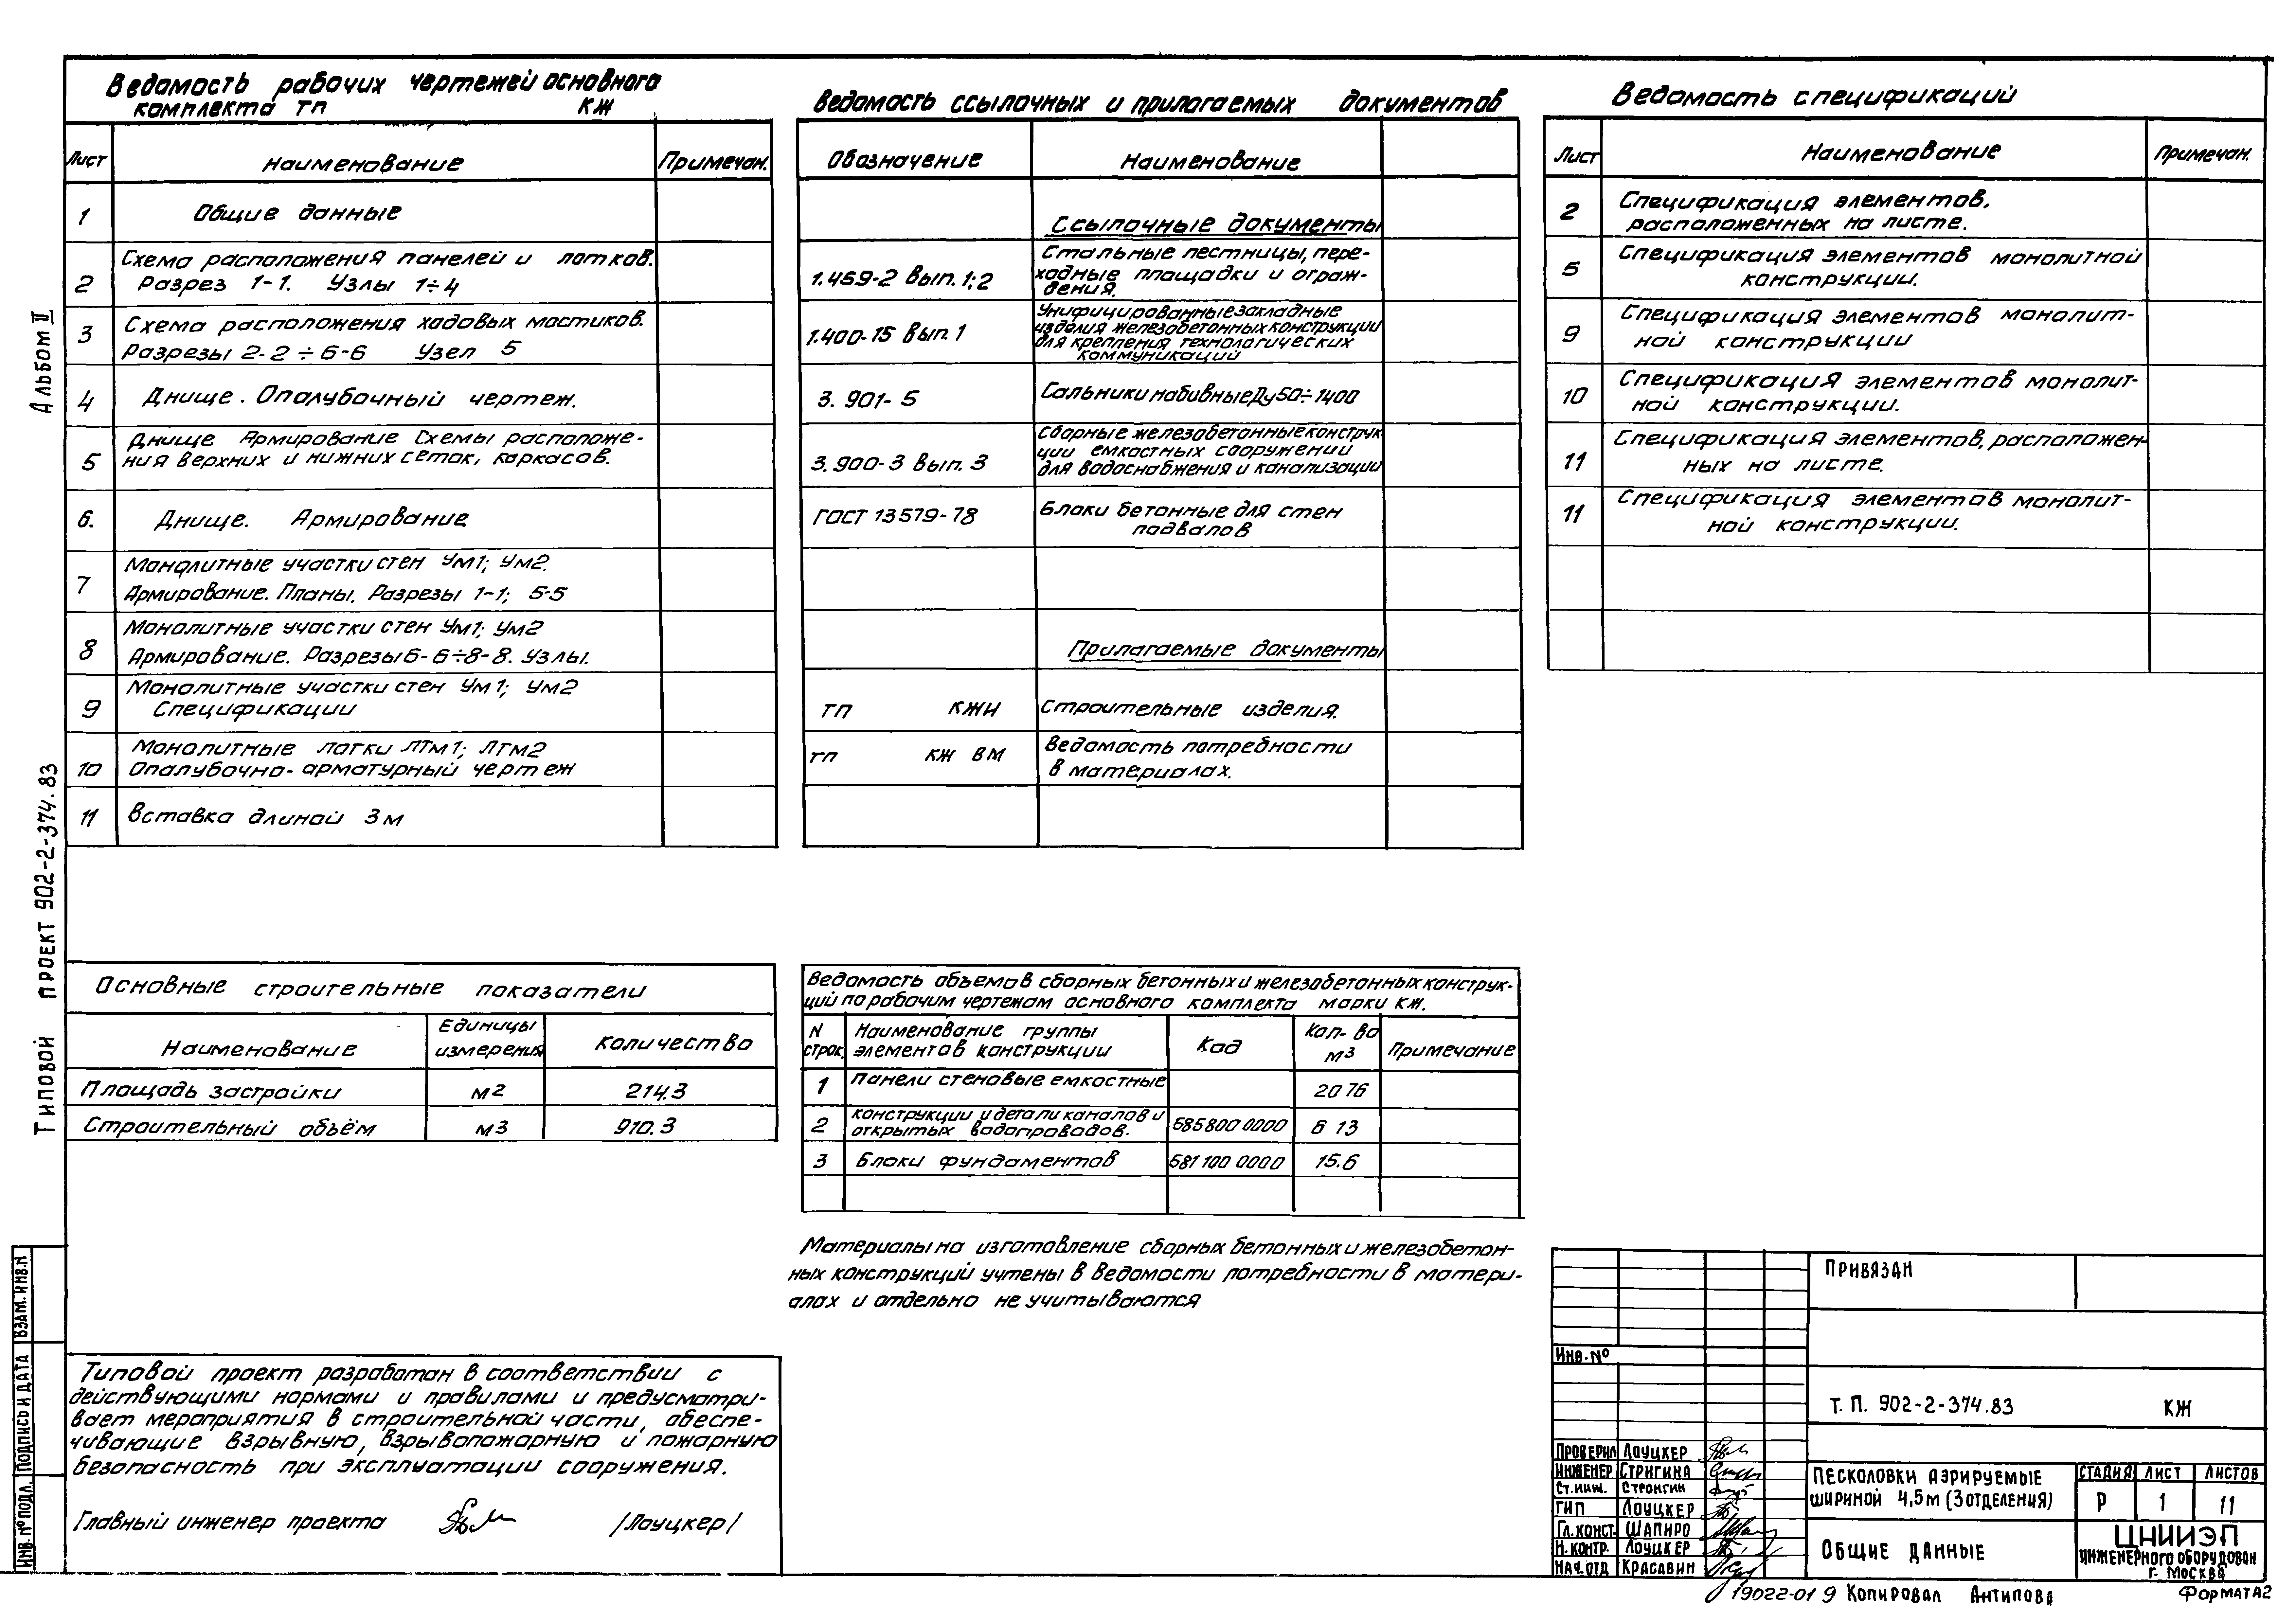 Ведомость рабочих чертежей основного
комплекта ТП КЖ
Лист Наименование Примечан.
1 Общие данные
2 Схема расположения панелей и лотков.
Разрез 1-1. Узлы 1÷4
3 Схема расположения ходовых мостиков.
Разрезы 2-2÷6-6 Узел 5
4 Днище. Опалубочный чертеж.
5 Днище Армирование Схемы расположе-
ния верхних и нижних сеток, каркасов.
6. Днище. Армирование
7 Монолитные участки стен Ум1; Ум2.
Армирование. Планы. Разрезы 1-1; 5-5
8 Монолитные участки стен Ум1; Ум2
Армирование. Разрезы 6-6÷8-8. Узлы.
9 Монолитные участки стен Ум1; Ум2
Спецификации
10 Монолитные лотки ЛТм1; ЛТм2
Опалубочно-арматурный чертеж
11 Вставка длиной 3м
Ведомость ссылочных и прилагаемых документов
Обозначение Наименование
Ссылочные документы
1.459-2 Вып. 1;2 Стальные лестницы, пере-
ходные площадки и ограж-
дения.
1.400-15 Вып. 1 Унифицированные закладные
изделия железобетонных конструкции
для крепления технологических
коммуникаций
3. 901-5 Сальники набивные Ду50÷1400
3.900-3 Вып. 3 Сборные железобетонные конструк-
ции емкостных сооружений
для водоснабжения и канализации
ГОСТ 13579-78 Блоки бетонные для стен
подвалов
Прилагаемые документы
ТП КЖИ Строительные изделия.
ТП КЖ ВМ Ведомость потребности
в материалах.
Ведомость спецификаций
Лист Наименование Примечан.
2 Спецификация элементов,
расположенных на листе.
5 Спецификация элементов монолитной
конструкции.
9 Спецификация элементов монолит-
ной конструкции
10 Спецификация элементов монолит-
ной конструкции.
11 Спецификация элементов, расположен-
ных на листе.
11 Спецификация элементов монолит-
ной конструкции.
Основные строительные показатели
Наименование Единицы измерения Количество
Площадь застройки м2 214.3
Строительный объём м3 910.3
Ведомость объемов сборных бетонных и железобетонных конструк-
ций по рабочим чертежам основного комплекта марки КЖ.
N строк. Наименование группы элементов конструкции Код Кол-во м3 Примечание
1 Панели стеновые емкостные 20 76
2 Конструкции и детали каналов и
открытых водопроводов. 585800 0000 6 13
3 Блоки фундаментов 581 100 0000 15.6
Материалы на изготовление сборных бетонных и железобетон-
ных конструкций учтены в ведомости потребности в матери-
алах и отдельно не учитываются
Типовой проект разработан в соответствии с
действующими нормами и правилами и предусматри-
вает мероприятия в строительной части, обеспе-
чивающие взрывную, взрывопожарную и пожарную
безопасность при эксплуатации сооружения.
Главный инженер проекта /Лоуцкер/
Альбом II
Типовой проект 902-2-374.83
Взам. инв. N
Подпись и дата
Инв. № подл.
Привязан
Инв. №
Т. П. 902-2-374.83 КЖ
Проверил Лоуцкер
Инженер Стригина
Ст. инж. Стронгин
ГИП Лоуцкер
Гл. конст. Шапиро
Н. контр. Лоуцкер
Нач. отд Красавин
Песколовки аэрируемые
шириной 4,5м (3 отделения)
Стадия Лист Листов
Р 1 11
Общие данные
ЦНИИЭП
инженерного оборудован
г. Москва
19022-01 9 Копировал Антипова Формат А2